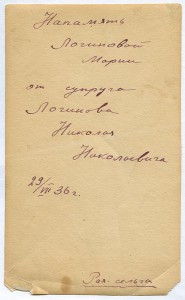 Напамять
Логиновой
Марии
от супруга
Логинова
Николая
Николоевича
29/VII 36 г.
Рая-сельга